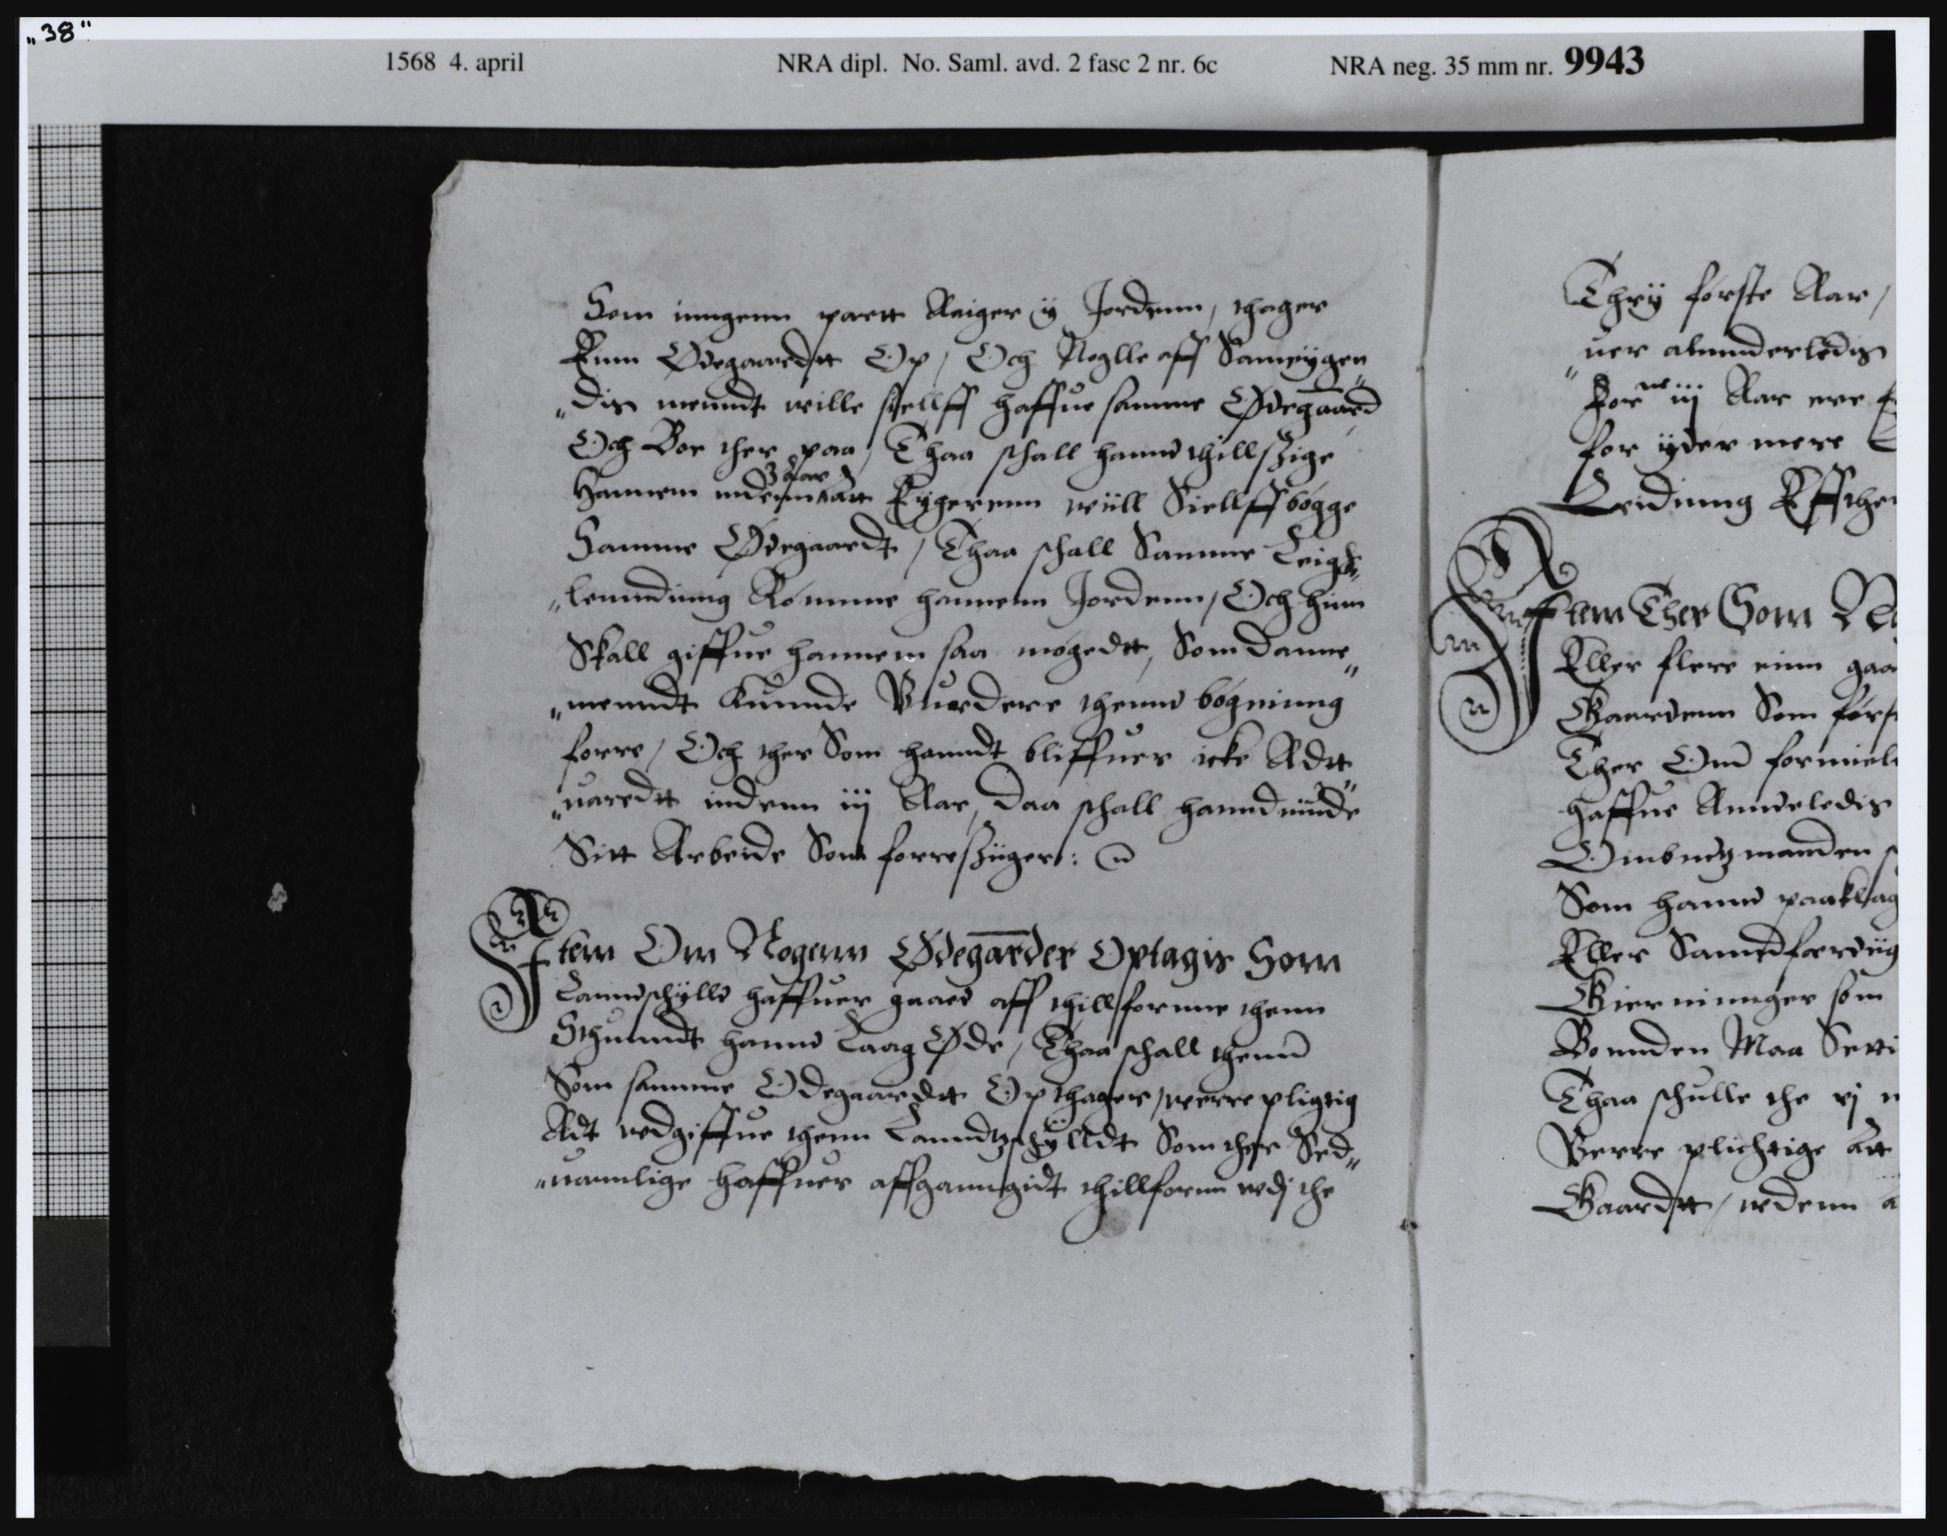 „38"
1568 4. april NRA dipl. No. Saml. avd. 2 fasc 2 nr. 6c NRA neg. 35 mm nr. 9943
Som inngenn partt Aaiger ÿ Jordenn, thager
Enn Ødegaardtt Op, Och Noglle aff Sameÿgen„
„dis menndt wille siellff haffue samme Ødegaard
Och Boe ther paa, Thaa schall hannd thillszige
Hannem indenn Eÿgerenn will Siellff bögge
Samme Ødegaardt, Thaa schall Samme Leigh„
„lenndinng Römme hannenn Jordenn, Och hinn
Skall giffue hannem saa mögedtt, Som danne„
„menndt kunnde Vuordere thennd bögninng
forre, Och ther Som hanndt bliffuer icke Adtt„
„uaredtt indenn iij Aar, Daa schall hannd niude
Sitt Arbeide Som forresziiger:
Item Om Nogenn Ødegaarder Optagis Som
Lanndschÿlld haffuer gaaed aff thillfornne thenn
Sthunndt hannd Laag Øde, Thaa schall thennd
Som samme Ødegaardtt Opthager, werre pligtig
Adt wdgiffue thenn Lanndtzschÿlldt Som ther Sed„
„uannlige haffuer affganngidt thillforn wdj the
Thrÿ förste Aar,
uer alunnderledis
For iij Aar ere
for ÿder mere
Leidinng Effther
Item Ther Som
Eller flere einn
Gaardenn Som först
Ther Om formiel
haffue Annderledis
Ombutzmanden
Som hannd paaklag
Eller Samdfærdig
Gierninnger som
Bonnden Maa Setti
Thaa schulle the vj
Verre plichtige att
Gaardtt, wdenn a